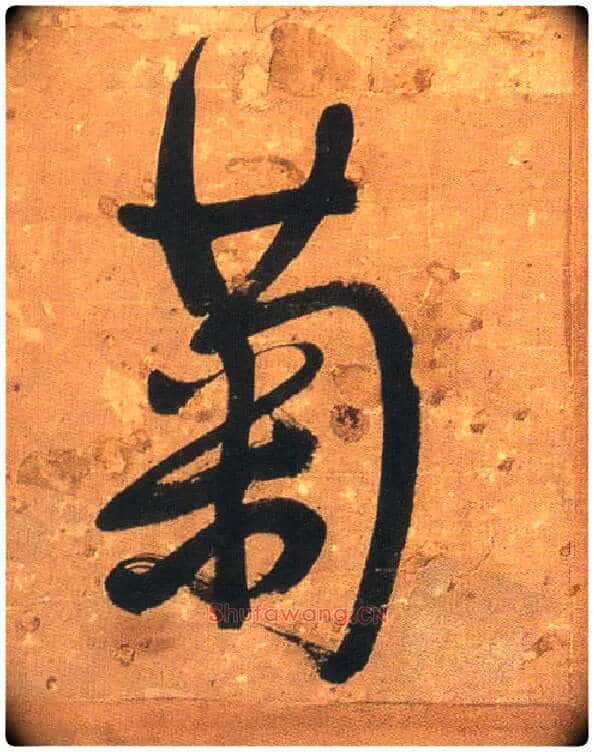 菊
Shufawang.cn